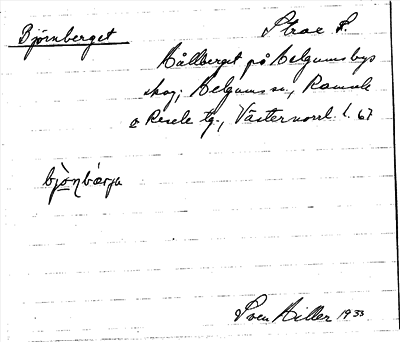 Björnberget
Strax S.
Hållberget på Helgums bys
skog; Helgums sn, Ramsele
o Resele tg., Västernorrl. l. 67
bjö̀ṇbærja
Sven Hiller 1933